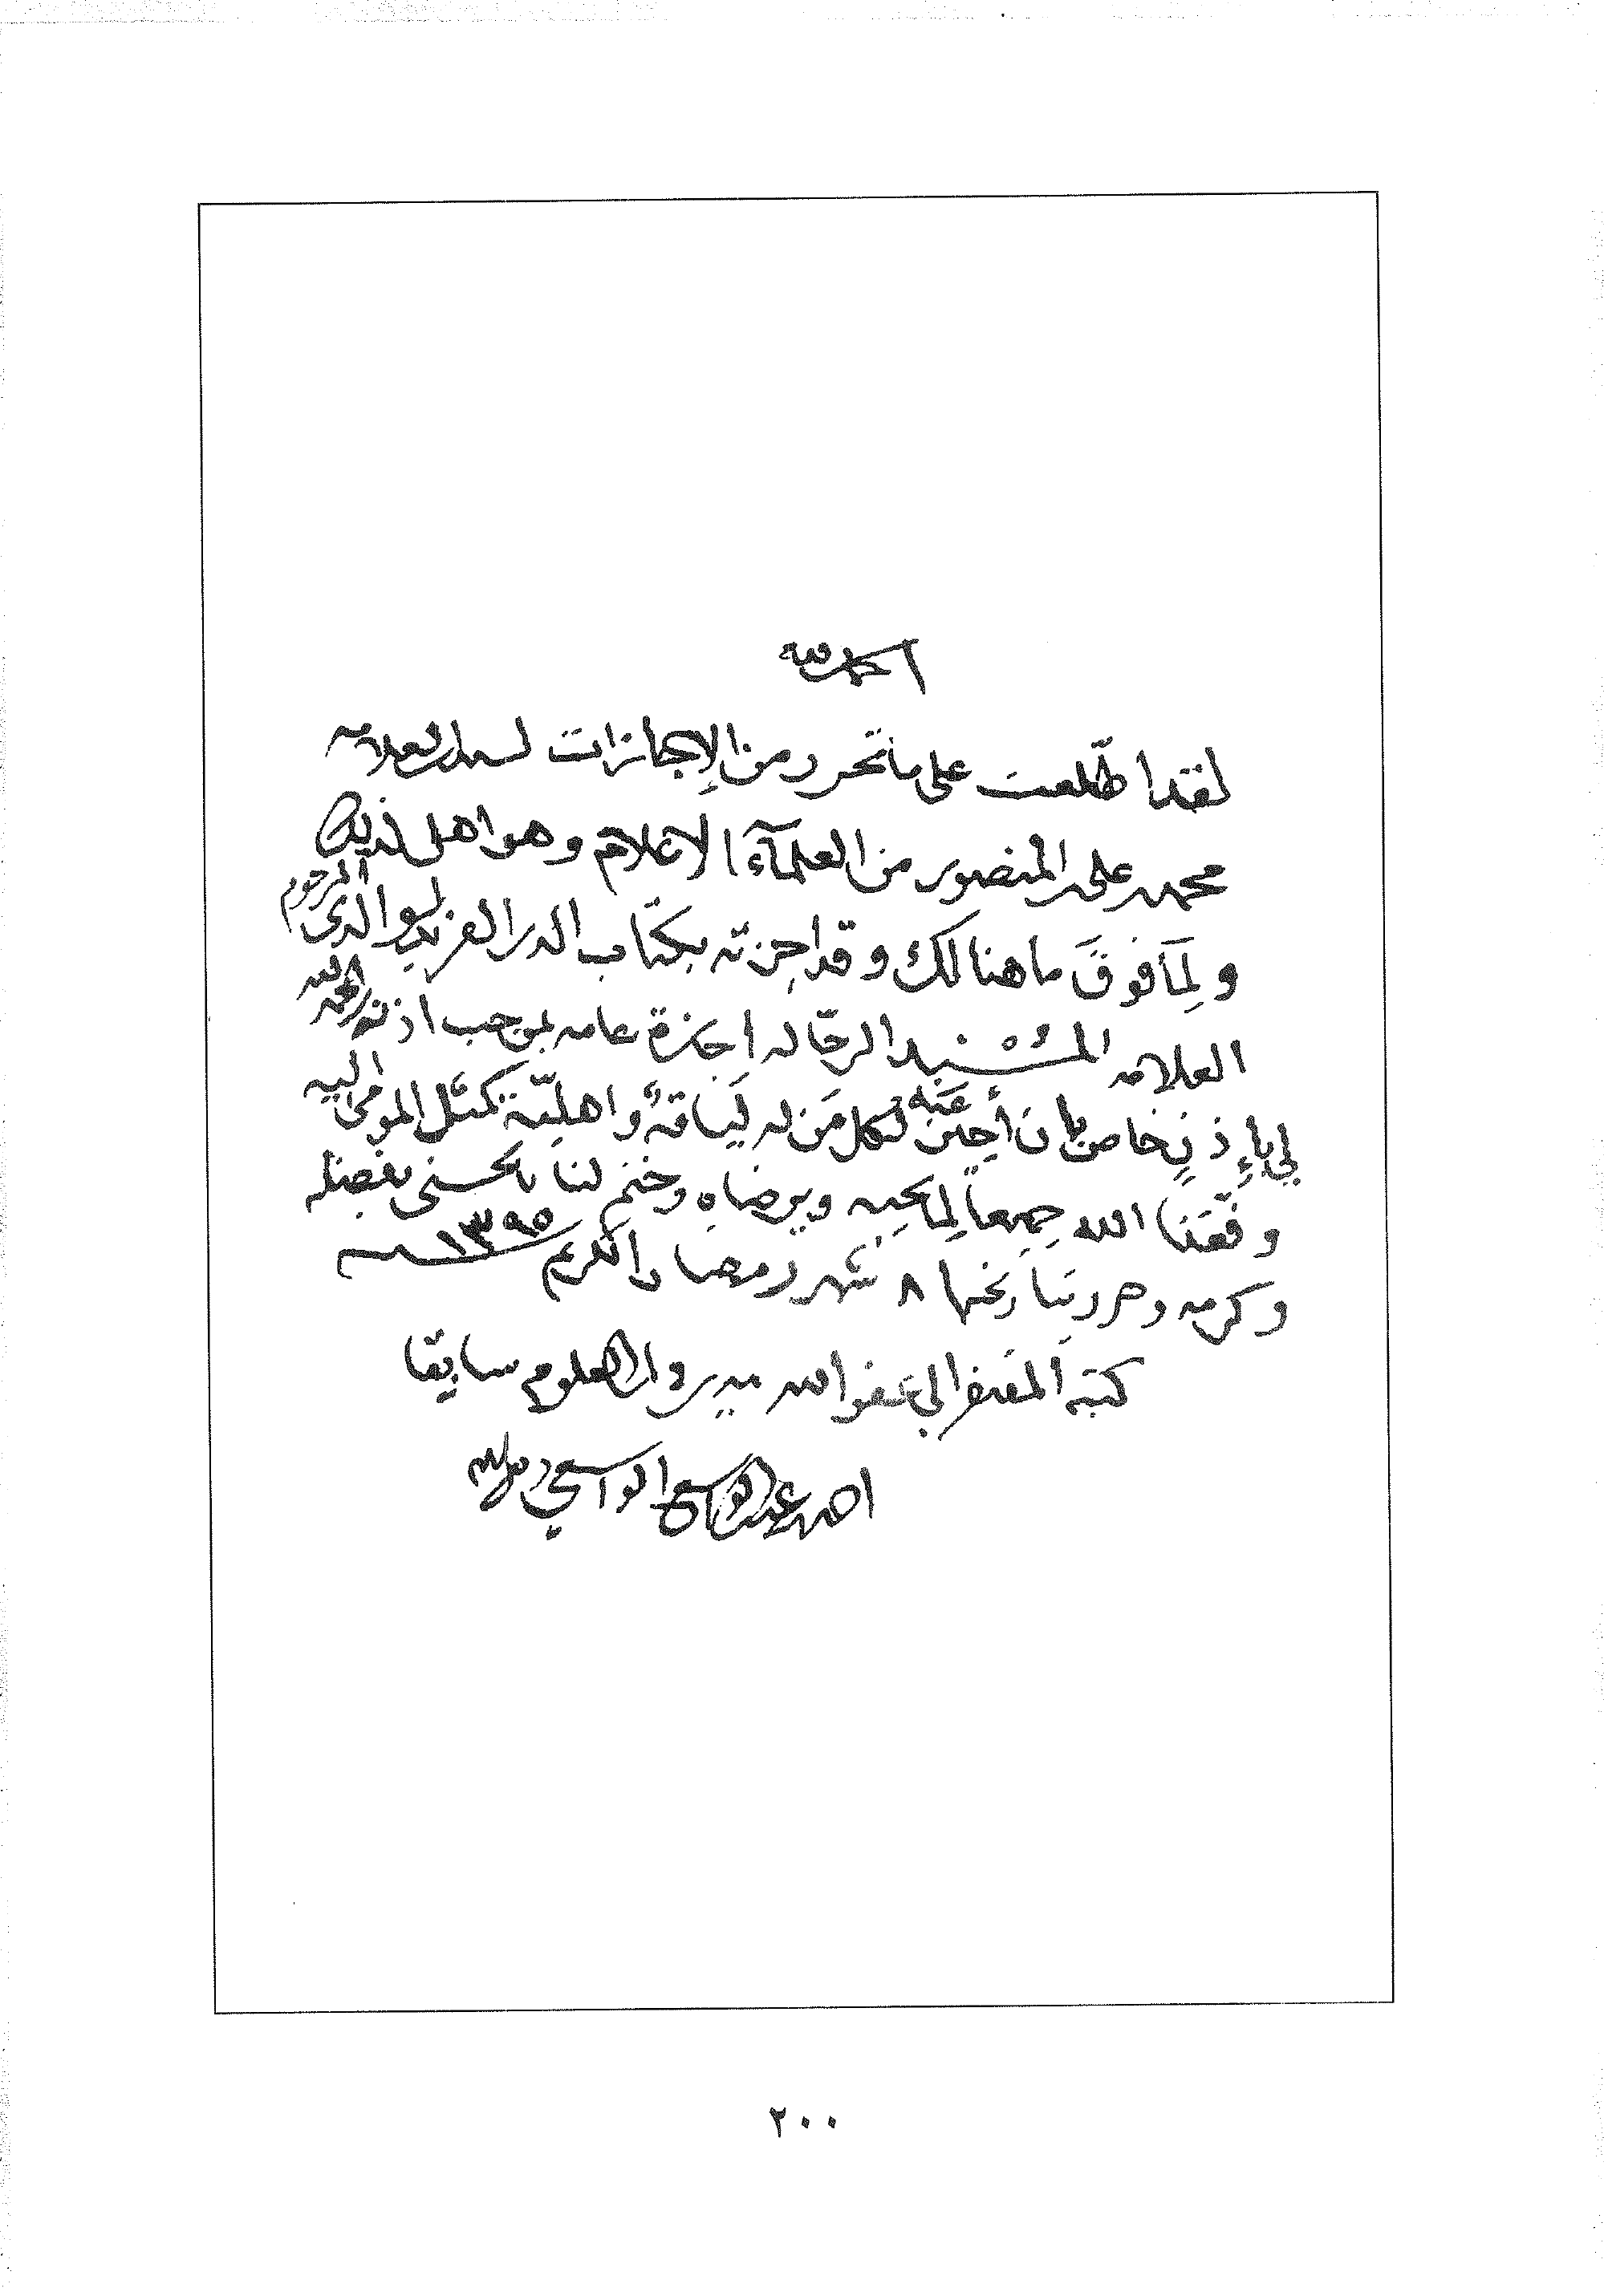 الحمد لله
لقد اطّلعت على ما تحرر من الإجازات لسيدي العلامه
محمد علي المنصور من العلمآء الاعلام وهو اهل لذلك
ولِمَا فوقَ ما هنالك وقد اجزته بكتاب الدر الفريد لسوالدي المرحوم
العلامه المُسْنِد الرحّاله اجازة عامه بموجب اذنه رحمه الله
لي بإذنٍ خاص بان أجيز عنه لكل مَن له لَيَاقةٌ واهليّة كمثل المومى اليه
وفقنا الله جميعاً لما يحبه ويرضاه وختم لنا بالحسنى بفضله
وكرمه وحرر بتاريخها ٨ شهر رمضان الكريم ١٣٩٥
كتبه المفتقر الى عفو الله مدير دار العلوم سابقا
احمد عبدالواسع الواسعي
٢٠٠